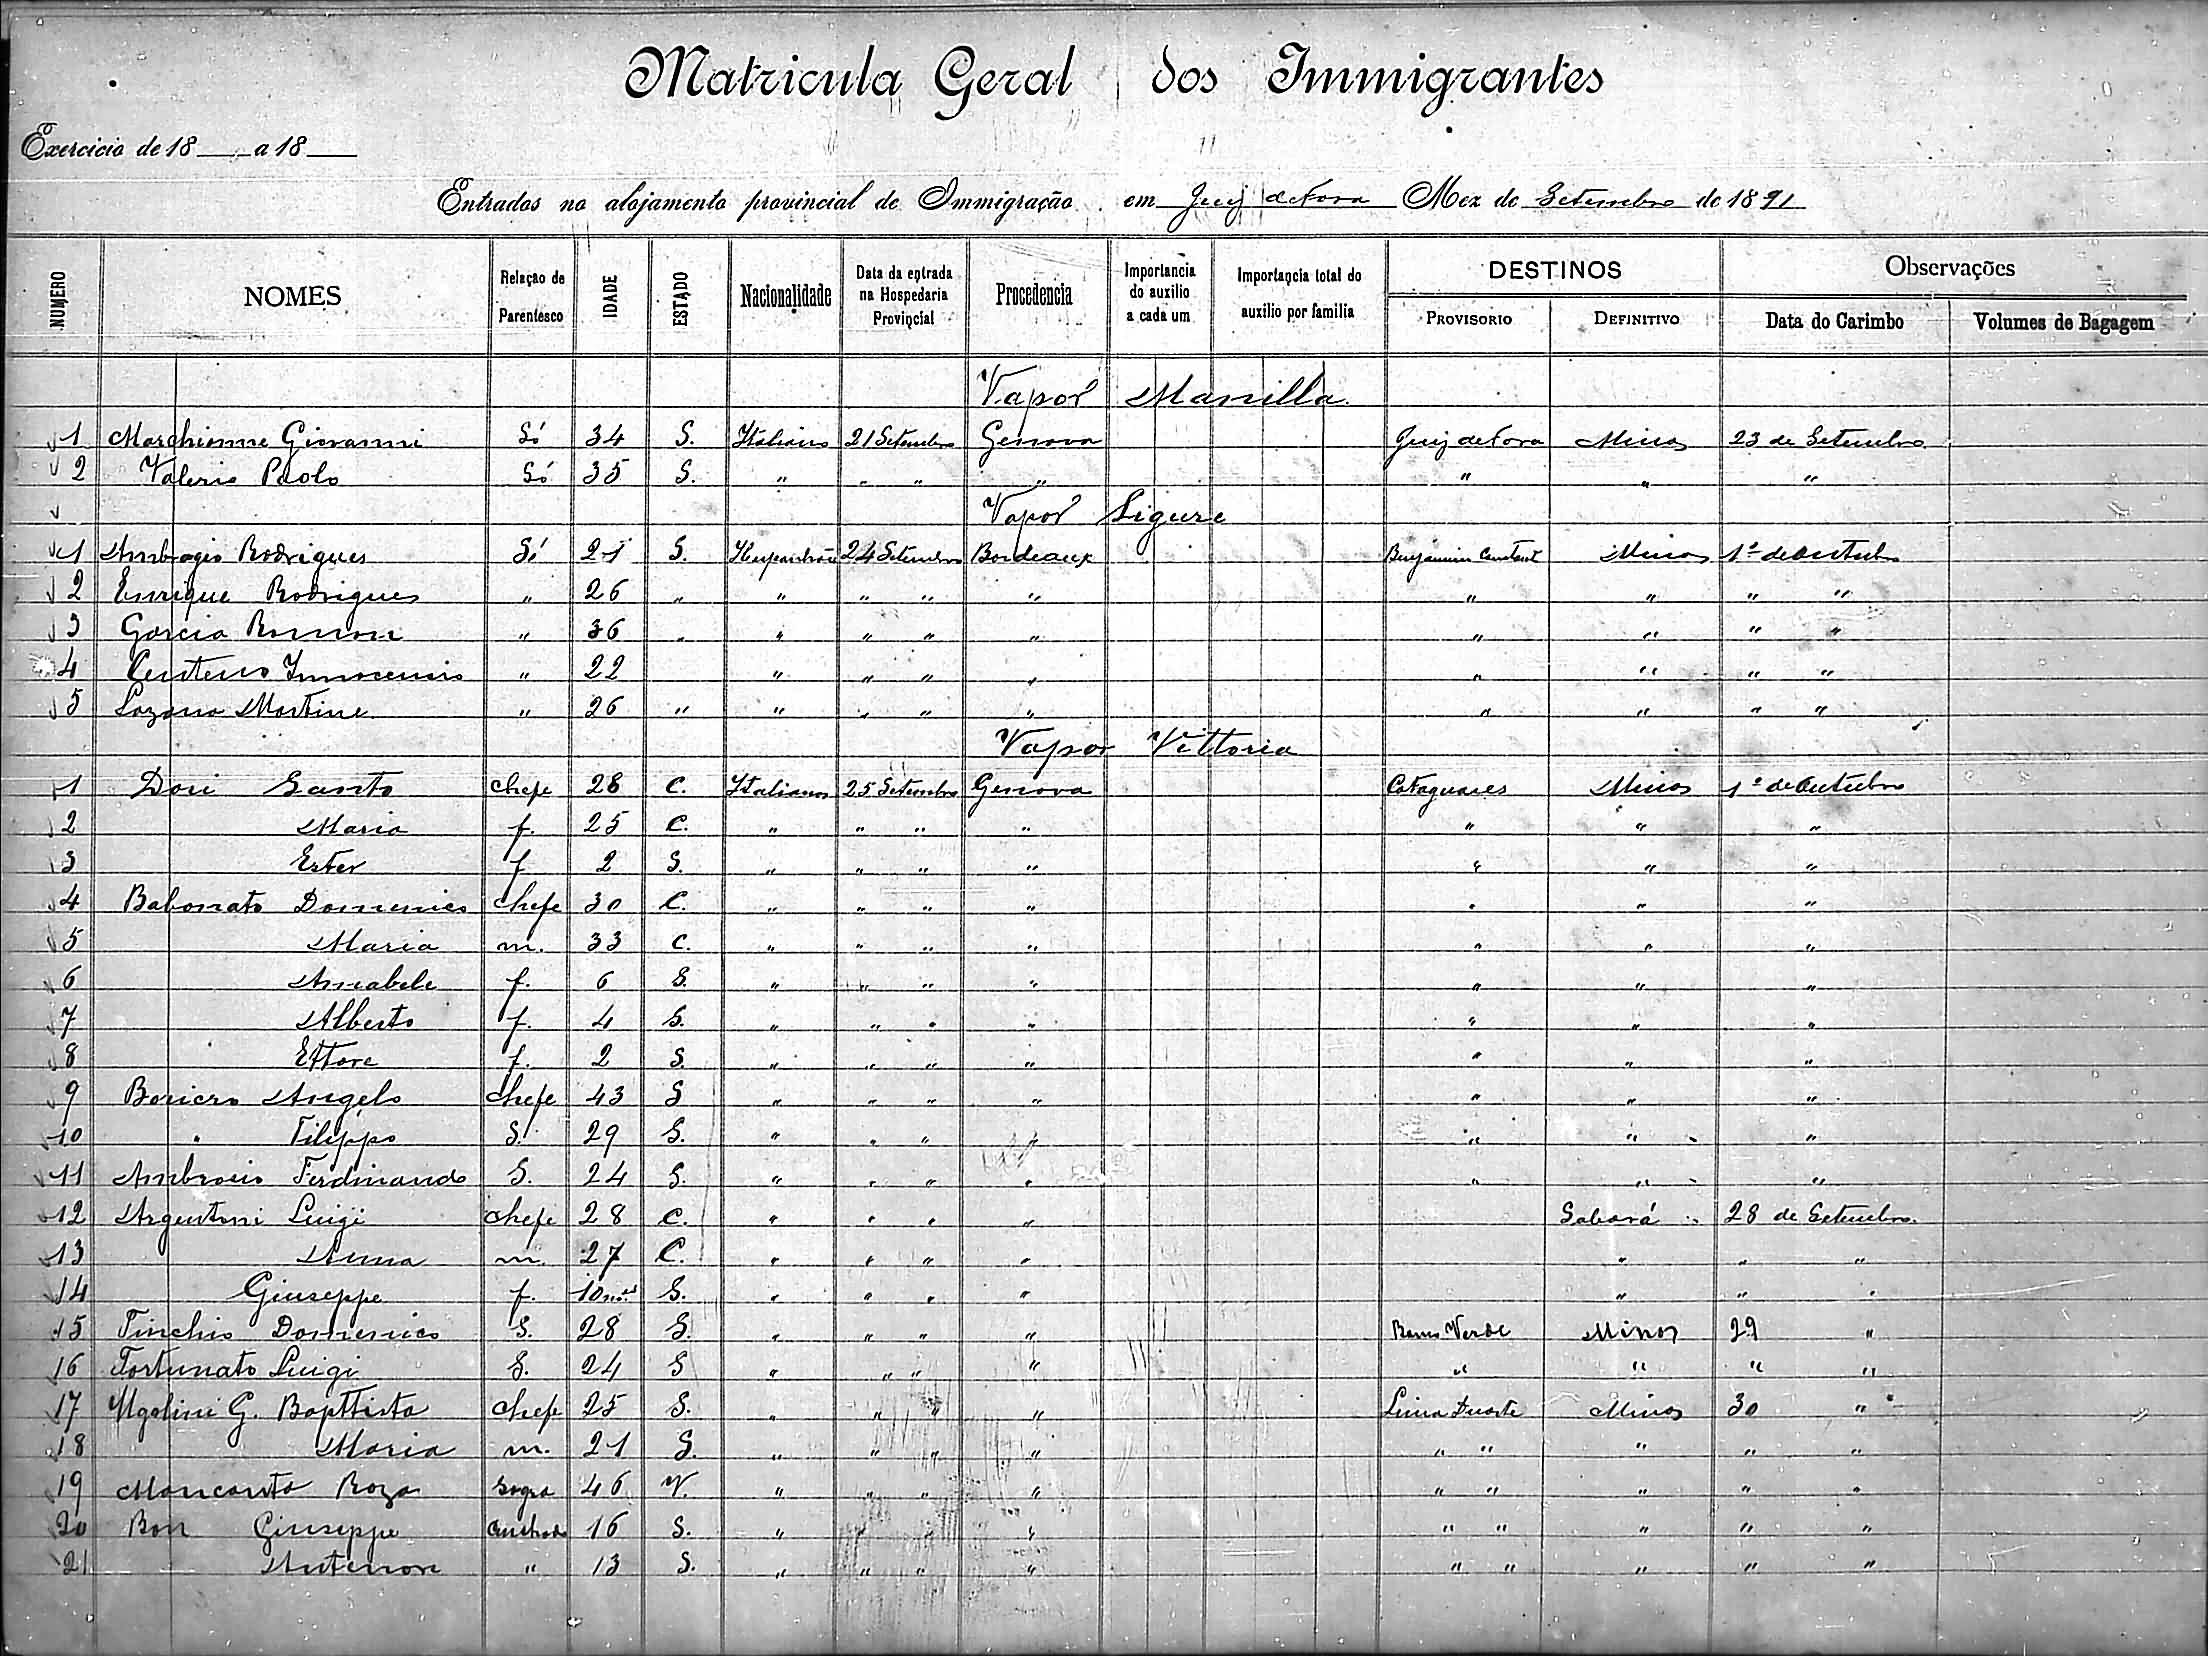 Matricula Geral dos Immigrantes
Exercicio de 18 a 18
Entrados no alojamento provincial de Immigração em Juiz de Fora Mez de Setembro de 1891
NUMERO NOMES Relação de Parentesco IDADE ESTADO Nacionalidade Data da entrada na Hospedaria Provincial Procedencia Importancia do auxilio a cada um Importancia total do auxilio por familia DESTINOS PROVISORIO DEFINITIVO Observações Data do Carimbo Volumes de Bagagem
Vapor Manilla
1 Marchionne Giovanni Só 34 S. Italiano 21 Setembro Genova Juiz de Fora Minas 23 de Setembro
2 Valerio Paolo Só 35 S. " " " " " " "
Vapor Ligure
1 Ambrogio Rodrigues Só 21 S. 24 Setembro Bordeaux Benjamim Constant Minas 1º de Outubro
2 Enrique Rodrigues " 26 " " " " " " " " "
3 Garcia Ramon " 36 " " " " " " " " "
4 Centeno Innocencio " 22 " " " " " " " "
5 Lozano Martine " 26 " " " " " " " " "
Vapor Vittoria
1 Dori Santo chefe 28 C. Italianos 25 Setembro Genova Cataguases Minas 1º de Outubro
2 Maria f. 25 C. " " " " " " "
3 Ester f 2 S. " " " " " " "
4 Babonato Domenico chefe 30 C. " " " " " " "
5 Maria m. 33 C. " " " " " " "
6 Annabele f. 6 S. " " " " " " "
7 Alberto f. 4 S. " " " " " " "
8 Ettore f. 2 S. " " " " " " "
9 Boniero Angelo chefe 43 S " " " " " " "
10 " Filippo S. 29 S. " " " " " " "
11 Ferdinando S. 24 S. " " " " " " "
12 Argentini Luigi chefe 28 C. " " " " Sabará " 28 de Setembro.
13 Anna m. 27 C. " " " " " " "
14 Giuseppe f. 10 mes S. " " " " " " "
15 Finchio Domenico S. 28 S. " " " " Ramo Verde Minas 29 "
16 Fortunato Luigi S. 24 S " " " " " " " "
17 Ugolini G. Baptista chefe 25 S. " " " " Lima Duarte Minas 30 "
18 Maria m. 21 S. " " " " " " " " "
19 Mancanta Roza Sogra 46 V. " " " " " " " " "
20 Bon Giuseppe Cunhado 16 S. " " " " " " " "
21 Antenore " 13 S. " " " " " " " " "